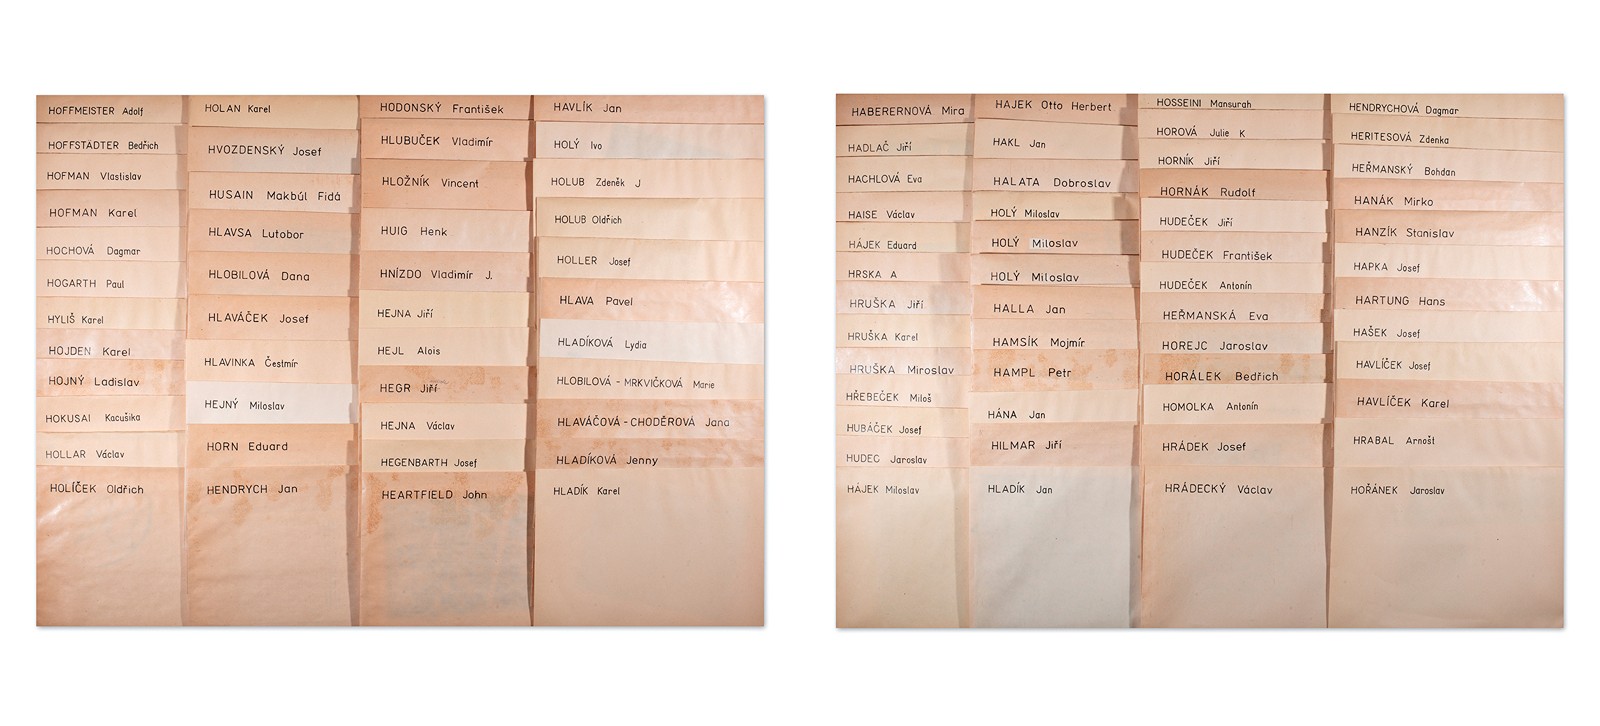 HOFFMEISTER Adolf
HOFFSTÄDTER Bedřich
HOFMAN Vlastislav
HOFMAN Karel
HOCHOVÁ Dagmar
HOGARTH Paul
HYLIŠ Karel
HOJDEN Karel
HOJNÝ Ladislav
HOKUSAI Kacušika
HOLLAR Václav
HOLÍČEK Oldřich
HOLAN Karel
HVOZDENSKÝ Josef
HUSAIN Makbúl Fidá
HLAVSA Lutobor
HLOBILOVÁ Dana
HLAVÁČEK Josef
HLAVINKA Čestmír
HEJNÝ Miloslav
HORN Eduard
HENDRYCH Jan
HODONSKÝ František
HLUBUČEK Vladimír
HLOŽNÍK Vincent
HUIG Henk
HNÍZDO Vladimír J.
HEJNA Jiří
HEJL Alois
HEGR Jiří
HEJNA Václav
HEGENBARTH Josef
HEARTFIELD John
HAVLÍK Jan
HOLÝ Ivo
HOLUB Zdeněk J
HOLUB Oldřich
HOLLER Josef
HLAVA Pavel
HLADÍKOVÁ Lydia
HLOBILOVÁ - MRKVIČKOVÁ Marie
HLAVÁČOVÁ - CHODĚROVÁ Jana
HLADÍKOVÁ Jenny
HLADÍK Karel
HABERERNOVÁ Mira
HADLAČ Jiří
HACHLOVÁ Eva
HAISE Václav
HÁJEK Eduard
HRSKA A
HRUŠKA Jiří
HRUŠKA Karel
HRUŠKA Miroslav
HŘEBEČEK Miloš
HUBÁČEK Josef
HUDEC Jaroslav
HÁJEK Miloslav
HAJEK Otto Herbert
HAKL Jan
HALATA Dobroslav
HOLÝ Miloslav
HOLÝ Miloslav
HOLÝ Miloslav
HALLA Jan
HAMSÍK Mojmír
HAMPL Petr
HÁNA Jan
HILMAR Jiří
HLADÍK Jan
HOSSEINI Mansurah
HOROVÁ Julie K
HORNÍK Jiří
HORNÁK Rudolf
HUDEČEK Jiří
HUDEČEK František
HUDEČEK Antonín
HEŘMANSKÁ Eva
HOREJC Jaroslav
HORÁLEK Bedřich
HOMOLKA Antonín
HRÁDEK Josef
HRÁDECKÝ Václav
HENDRYCHOVÁ Dagmar
HERITESOVÁ Zdenka
HEŘMANSKÝ Bohdan
HANÁK Mirko
HANZÍK Stanislav
HAPKA Josef
HARTUNG Hans
HAŠEK Josef
HAVLÍČEK Josef
HAVLÍČEK Karel
HRABAL Arnošt
HOŘÁNEK Jaroslav